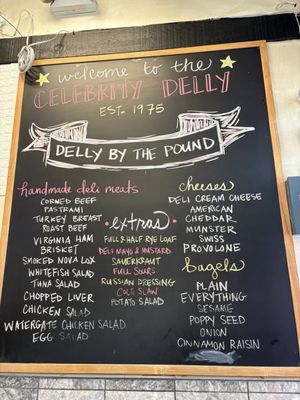 welcome to the
CELEBRITY DELLY
EST. 1975
DELLY BY THE POUND
handmade deli meats
CORNED BEEF
PASTRAMI
TURKEY BREAST
ROAST BEEF
VIRGINIA HAM
BRISKET
SMOKED NOVA LOX
WHITEFISH SALAD
TUNA SALAD
CHOPPED LIVER
CHICKEN SALAD
WATERGATE CHICKEN SALAD
EGG SALAD
• extras •
FULL & HALF RYE LOAF
DELI MAYO & MUSTARD
SAUERKRAUT
FULL SOURS
RUSSIAN DRESSING
COLE SLAW
POTATO SALAD
cheeses
DELI CREAM CHEESE
AMERICAN
CHEDDAR
MUNSTER
SWISS
PROVOLONE
bagels
PLAIN
EVERYTHING
SESAME
POPPY SEED
ONION
CINNAMON RAISIN